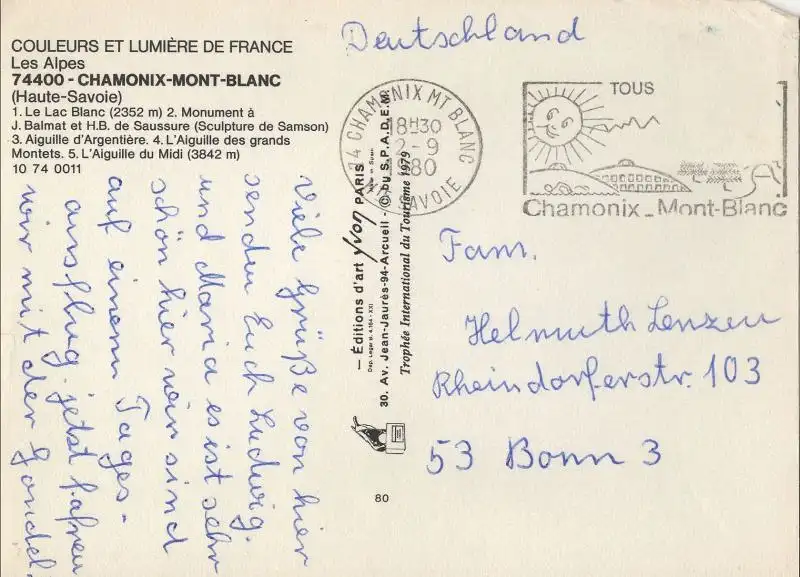 COULEURS ET LUMIÈRE DE FRANCE
Les Alpes
74400 - CHAMONIX-MONT-BLANC
(Haute-Savoie)
1. Le Lac Blanc (2352 m) 2. Monument à
J. Balmat et H.B. de Saussure (Sculpture de Samson)
3. Aiguille d'Argentière. 4. L'Aiguille des grands
Montets. 5. L'Aiguille du Midi (3842 m)
10 74 0011
viele Grüße von hier
senden Euch Ludwig.
und Maria es ist sehr
schön hier wir sind
auf einem Tages-
ausflug jetzt fahren
wir mit der Gondel.
— Éditions d'art Yvon PARIS
Dép. Légal
30. Av. Jean-Jaurès-94-Arcueil - © by S.P.A.D.E.M.
Trophée International du Tourisme 1979
80
Deutschland
74 CHAMONIX MT BLANC
18H30
2-9
80
SAVOIE
TOUS
Chamonix_Mont-Blanc
Fam.
Helmuth Lenzen
Rheindorferstr. 103
53 Bonn 3